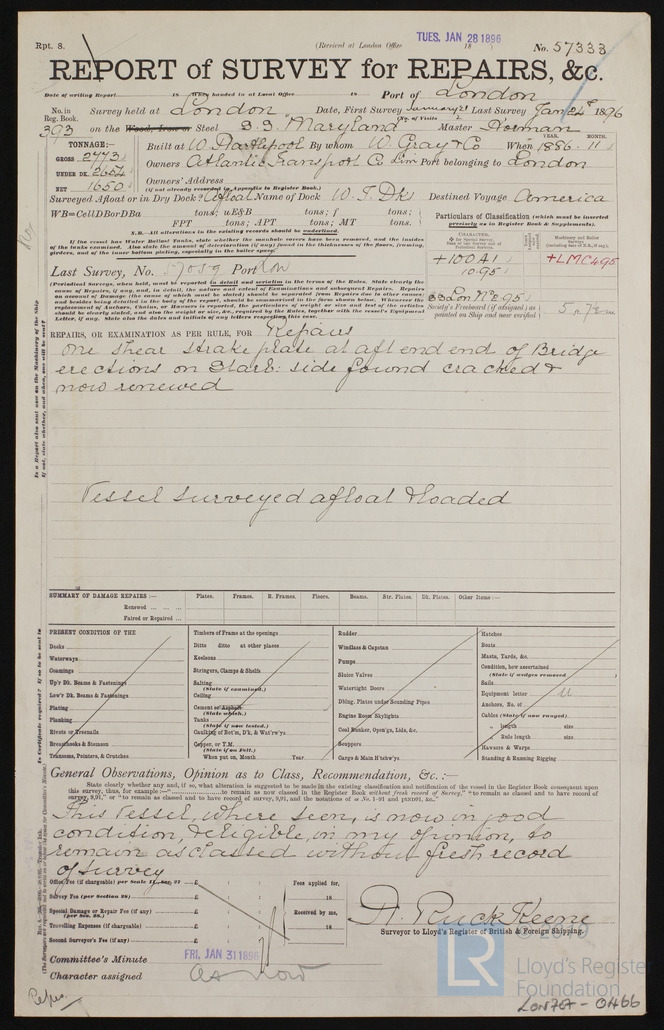 Rpt. 8.
(Received at London Office
TUES. JAN 28 1896
18
No. 57333
REPORT of SURVEY for REPAIRS, &c.
Date of writing Report 18 When handed in at Local Office 18 Port of London
No. in Reg. Book. Survey held at London Date, First Survey January 21 Last Survey Jan 24th 1896
(No. of Visits 2
393 on the Wood, Iron or Steel S.S. "Maryland" Master Norman
TONNAGE:—
GROSS 2773
UNDER DK. 2654
NET 1650
Built at W. Hartlepool By whom W. Gray & Co When YEAR. 1886 MONTH. 11
Owners Atlantic Transport Co Lim Port belonging to London
Owners' Address
(if not already recorded in Appendix to Register Book.)
Surveyed Afloat or in Dry Dock? Afloat Name of Dock W. I. Dks Destined Voyage America
WB=CellDBorDBa tons; uE&B tons; f tons;
FPT tons; APT tons; MT tons.
N.B.—All alterations in the existing records should be underlined.
If the vessel has Water Ballast Tanks, state whether the manhole covers have been removed, and the insides
of the tanks examined. Also state the amount of deterioration (if any) found in the thicknesses of the floors, framing,
girders, and of the inner bottom plating, especially in the boiler space.
Particulars of Classification (which must be inserted
precisely as in Register Book & Supplements).
+100A1
10.95
+LMC4.95
SS Lon No 2 95
Society's Freeboard (if assigned) as
painted on Ship and now verified
Last Survey, No. 57059 Port Lon
(Periodical Surveys, when held, must be reported in detail and seriatim in the terms of the Rules. State clearly the
cause of Repairs, if any, and, in detail, the nature and extent of Examinations and Repairs. Repairs
on account of Damage (the cause of which must be stated) should be separated from Repairs due to other causes;
besides being detailed in the body of the report, should be summarised in the form shewn below.
Letter, if any. State also the dates and initials of any letters respecting this case.
REPAIRS, OR EXAMINATION AS PER RULE, FOR Repairs
One shear strake plate at aft end end of Bridge
erections on Starb: side found cracked &
now renewed
Vessel surveyed afloat & loaded
SUMMARY OF DAMAGE REPAIRS:— Plates. Frames. R. Frames. Floors. Beams. Str. Plates. Dk. Plates. Other Items:—
Renewed ... ... ...
Faired or Repaired ...
PRESENT CONDITION OF THE
Decks
Waterways
Coamings
Up'r Dk. Beams & Fastenings
Low'r Dk. Beams & Fastenings
Plating
Planking
Rivets or Treenails
Breasthooks & Stemson
Transoms, Pointers, & Crutches
Timbers of Frame at the openings
Ditto ditto at other places
Keelsons
Stringers, Clamps & Shelfs
Salting
(State if examined.)
Ceiling
Cement or Asphalt
(State which.)
Tanks
(State if now tested.)
Caulking of Bot'm, D'k, & Wat'rw'ys
Copper, or Y.M.
(State if on Felt.)
When put on, Month Year
Rudder
Windlass & Capstan
Pumps
Sluice Valves
Watertight Doors
Dblng. Plates under Sounding Pipes
Engine Room Skylights
Coal Bunker, Open'gs, Lids, &c.
Scuppers
Cargo & Main H'tchw'ys
Hatches
Boats
Masts, Yards, &c.
Condition, how ascertained
(State if wedges removed)
Sails
Equipment letter U
Anchors, No. of
Cables (State if now ranged)
" length size
Rule length size
Hawsers & Warps
Standing & Running Rigging
General Observations, Opinion as to Class, Recommendation, &c.:—
State clearly whether any, and if so, what alteration is suggested to be made in the existing classification and notification of the vessel in the Register Book consequent upon
this survey, thus, for example:—" to remain as now classed in the Register Book without fresh record of Survey," "to remain as classed and to have record of
survey, 9,91," or "to remain as classed and to have record of survey, 9,91, and the notations of
This Vessel, where seen, is now in good
condition, & eligible, in my opinion, to
remain as classed without fresh record
of survey
Office Fee (if chargeable) per Scale £ : :
Survey Fee (per Section 28) £ : :
Special Damage or Repair Fee (if any)
(per Sec. 28.) £ : :
Travelling Expenses (if chargeable) £ : :
Second Surveyor's Fee (if any) £ : :
Fees applied for,
18
Received by me,
18
H. Ruck Keene
Surveyor to Lloyd's Register of British & Foreign Shipping.
Committee's Minute
FRI. JAN 31 1896
Character assigned as now
LR
Lloyd's Register
Foundation
LON722 - 0466